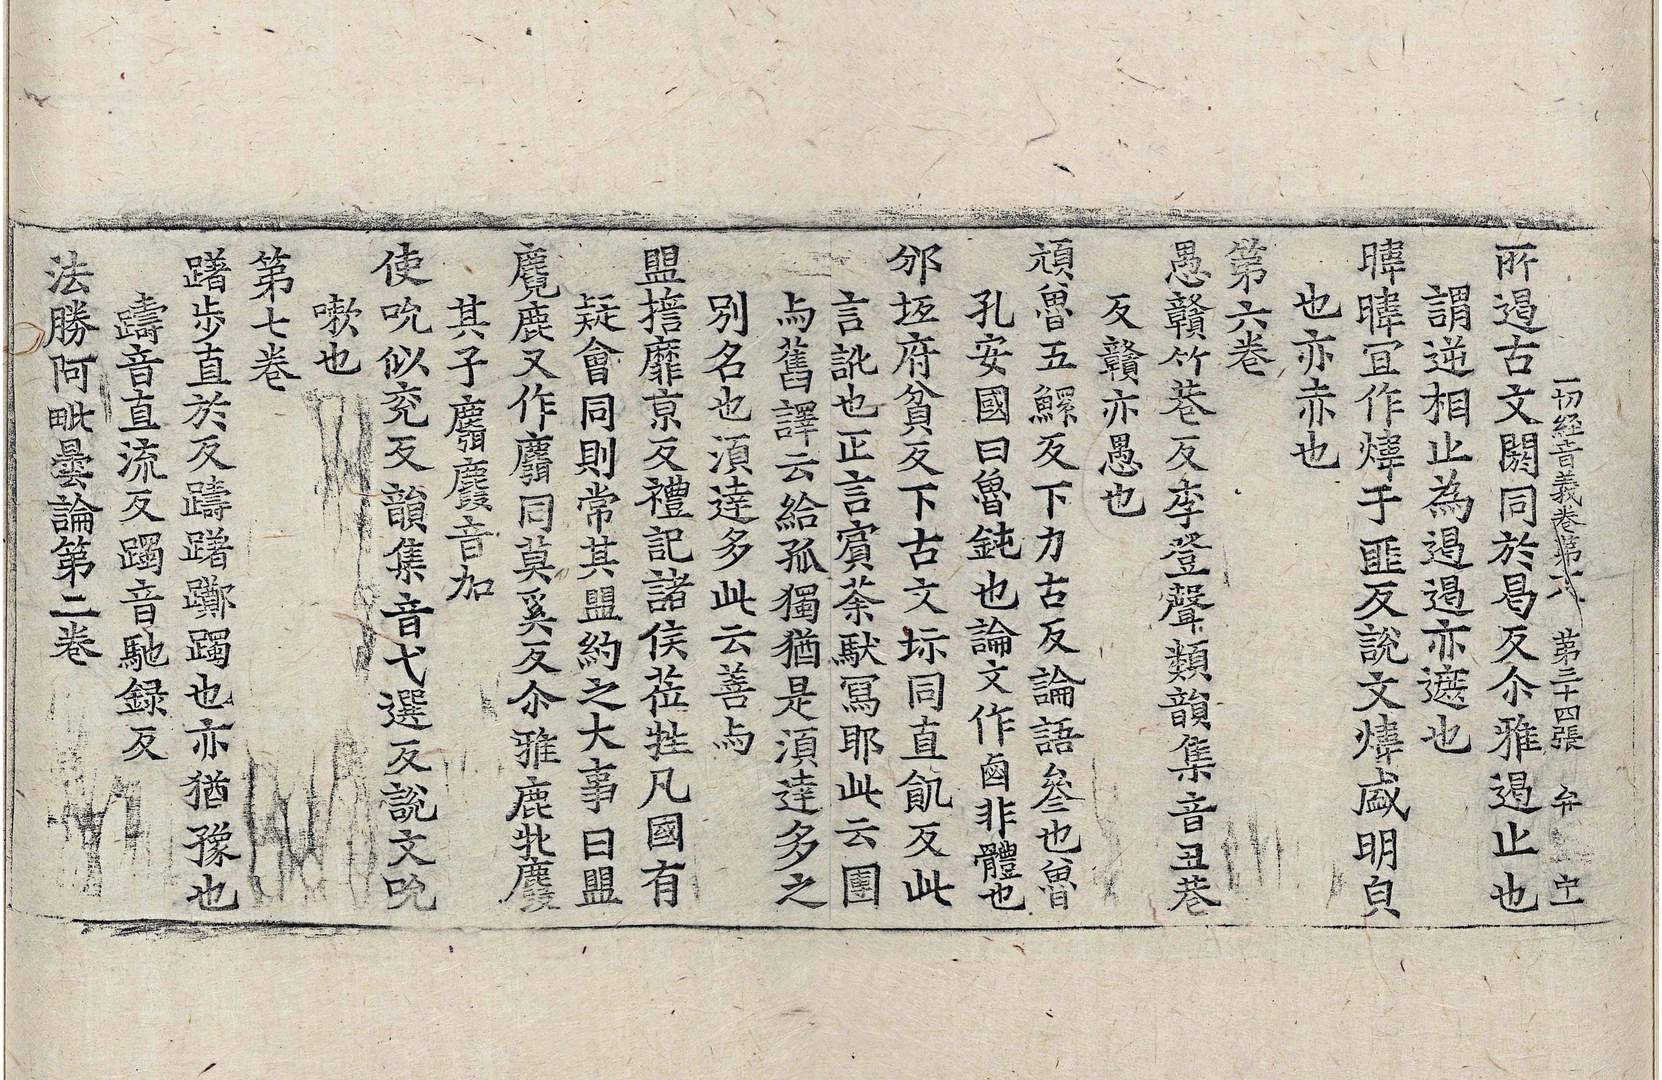 一切經音義卷第十八　第三十四張　弁
所遏古文閼同於曷反尒雅遏止也
謂逆相止為遏遏亦遮也
暐暐冝作煒于匪反說文煒盛明皃
也亦赤也
第六卷
愚贛竹巷反李登聲類韻集音丑巷
反贛亦愚也
頑魯五鰥反下力古反論語叅也魯
孔安國曰魯鈍也論文作鹵非體也
邠坻府貧反下古文坁同直飢反此
言訛也正言賓荼馱冩耶此云團
与舊譯云給孤獨猶是湏逹多之
別名也湏逹多此云善与
盟㩜靡京反禮記諸侯莅牲凡國有
疑會同則常其盟約之大事曰盟
麑鹿又作麛同莫奚反尒雅鹿牝麀
其子麛麚音加
使吮似兖反韻集音弋選反說文吮
嗽也
第七卷
躇步直於反躊躇躑躅也亦猶豫也
躊音直流反躅音馳録反
法勝阿毗曇論第二卷